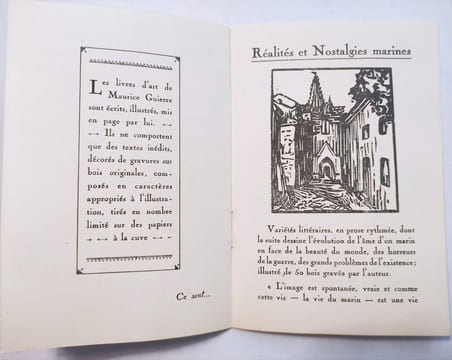 Les livres d'art de
Maurice Guierre
sont écrits, illustrés, mis
en page par lui. ←→
←→ Ils ne comportent
que des textes inédits,
décorés de gravures sur
bois originales, com-
posés en caractères
appropriés à l'illustra-
tion, tirés en nombre
limité sur des papiers
←→ ←→ à la cuve ←→
Ce sont...
Réalités et Nostalgies marines
Variétés littéraires, en prose rythmée, dont
la suite dessine l'évolution de l'âme d'un marin
en face de la beauté du monde, des horreurs
de la guerre, des grands problèmes de l'existence ;
illustré de 50 bois gravés par l'auteur.
« L'image est spontanée, vraie et comme
cette vie — la vie du marin — est une vie